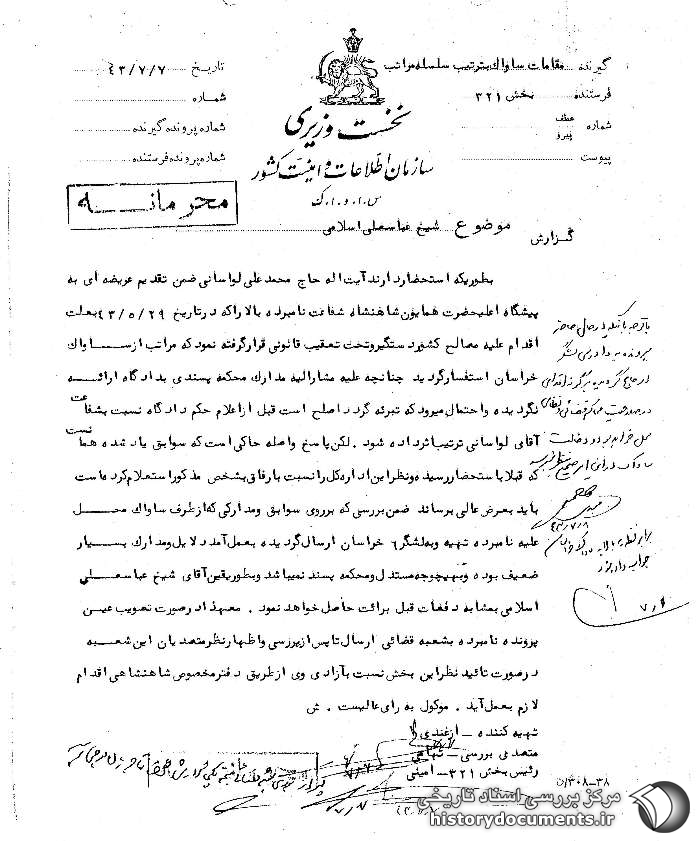 گیرنده مقامات ساواک بترتیب سلسله مراتب
فرستنده بخش ۳۲۱
شماره عطف پیرو
پیوست
تاریخ ۴۳/۷/۷
شماره
شماره پرونده گیرنده
شماره پرونده فرستنده
نخست وزیری
سازمان اطلاعات و امنیت کشور
س.ا.و.ا.ک
محرمانه
گزارش
موضوع شیخ عباسعلی اسلامی
بطوریکه استحضار دارند آیت اله حاج محمد علی لواسانی ضمن تقدیم عریضه ای به
پیشگاه اعلیحضرت همایون شاهنشاه شفاعت نامبرده بالا راکه در تاریخ ۴۳/۵/۲۹ بعلت
اقدام علیه مصالح کشور دستگیر وتحت تعقیب قانونی قرارگرفته نمود که مراتب از ساواک
خراسان استفسار گردید چنانچه علیه مشارالیه مدارک محکمه پسندی بدادگاه ارائه
نگردیده واحتمال میرود که تبرئه گردد اصلح است قبل ازاعلام حکم دادگاه نسبت بشفاعت
آقای لواسانی ترتیب اثر داده شود . لکن پاسخ واصله حاکی است که سوابق یاد شده همانست
که قبلا باستحضار رسیده ونظر این اداره کل را نسبت بارفاق بشخص مذکور استعلام کرده است
باید بعرض عالی برساند ضمن بررسی که برروی سوابق ومدارکی که ازطرف ساواک محل
علیه نامبرده تهیه وبه لشگر ۶ خراسان ارسال گردیده بعمل آمد دلایل ومدارک بسیار
ضعیف بوده وبهیچوجه مستدل ومحکمه پسند نمیباشد وبطور یقین آقای شیخ عباسعلی
اسلامی بمشابه دفعات قبل برائت حاصل خواهد نمود . معهذا در صورت تصویب عین
پرونده نامبرده بشعبه قضائی ارسال تا پس از بررسی واظهار نظر متصدیان این شعبه
در صورت تائید نظر این بخش نسبت بآزادی وی ازطریق دفتر مخصوص شاهنشاهی اقدام
لازم بعمل آید . موکول به رای عالیست . ش
تهیه کننده - ازغندی
متصدی بررسی -
رئیس بخش ۳۲۱ - امینی
۵/۳۰۸-۳۸
مرکز بررسی اسناد تاریخی
historydocuments.ir